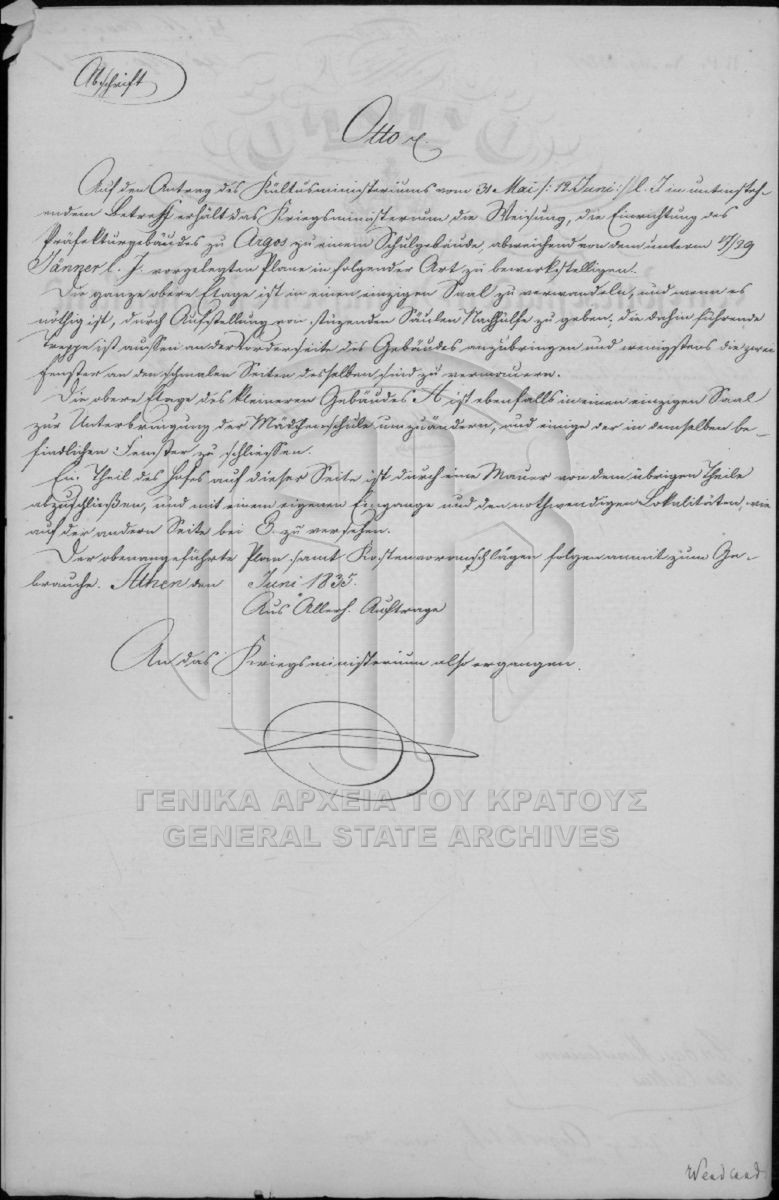 Abschrift
Otto &c.
Auf den Antrag des Kultusministeriums vom 31 Mai /: 12 Juni :/ l. J. in untensteh-
endem Betreff erhält das Kriegsministerium die Weisung, die Einrichtung des
Präfekturgebäudes zu Argos zu einem Schulgebäude, abweichend von dem unterm 17/29
Jänner l. J. vorgelegten Plane in folgender Art zu bewerkstelligen.
Die ganze obere Etage ist in einen einzigen Saal zu verwandeln, und wenn es
nöthig ist, durch Aufstellung von stüzenden Säulen Nachhülfe zu geben, die dahin führende
Treppe ist aussen an der Vorderseite des Gebäudes anzubringen und wenigstens die zwei
Fenster an den schmalen Seiten desselben sind zu vermauern.
Die obere Etage des kleineren Gebäudes A ist ebenfalls in einen einzigen Saal
zur Unterbringung der Mädchenschule umzuändern, und einige der in demselben be-
findlichen Fenster zu schliessen.
Ein Theil des Hofes auf dieser Seite ist durch eine Mauer von dem übrigen Theile
abzuschließen, und mit einem eigenen Eingange und den nothwendigen Lokalitäten, wie
auf der andern Seite bei B. zu versehen.
Der obenangeführte Plan samt Kostenvoranschlägen folgen anmit zum Ge-
brauche. Athen den Juni 1835.
Aus Allerh. Auftrage
An das Kriegsministerium also ergangen.
ΓΕΝΙΚΑ ΑΡΧΕΙΑ ΤΟΥ ΚΡΑΤΟΥΣ
GENERAL STATE ARCHIVES